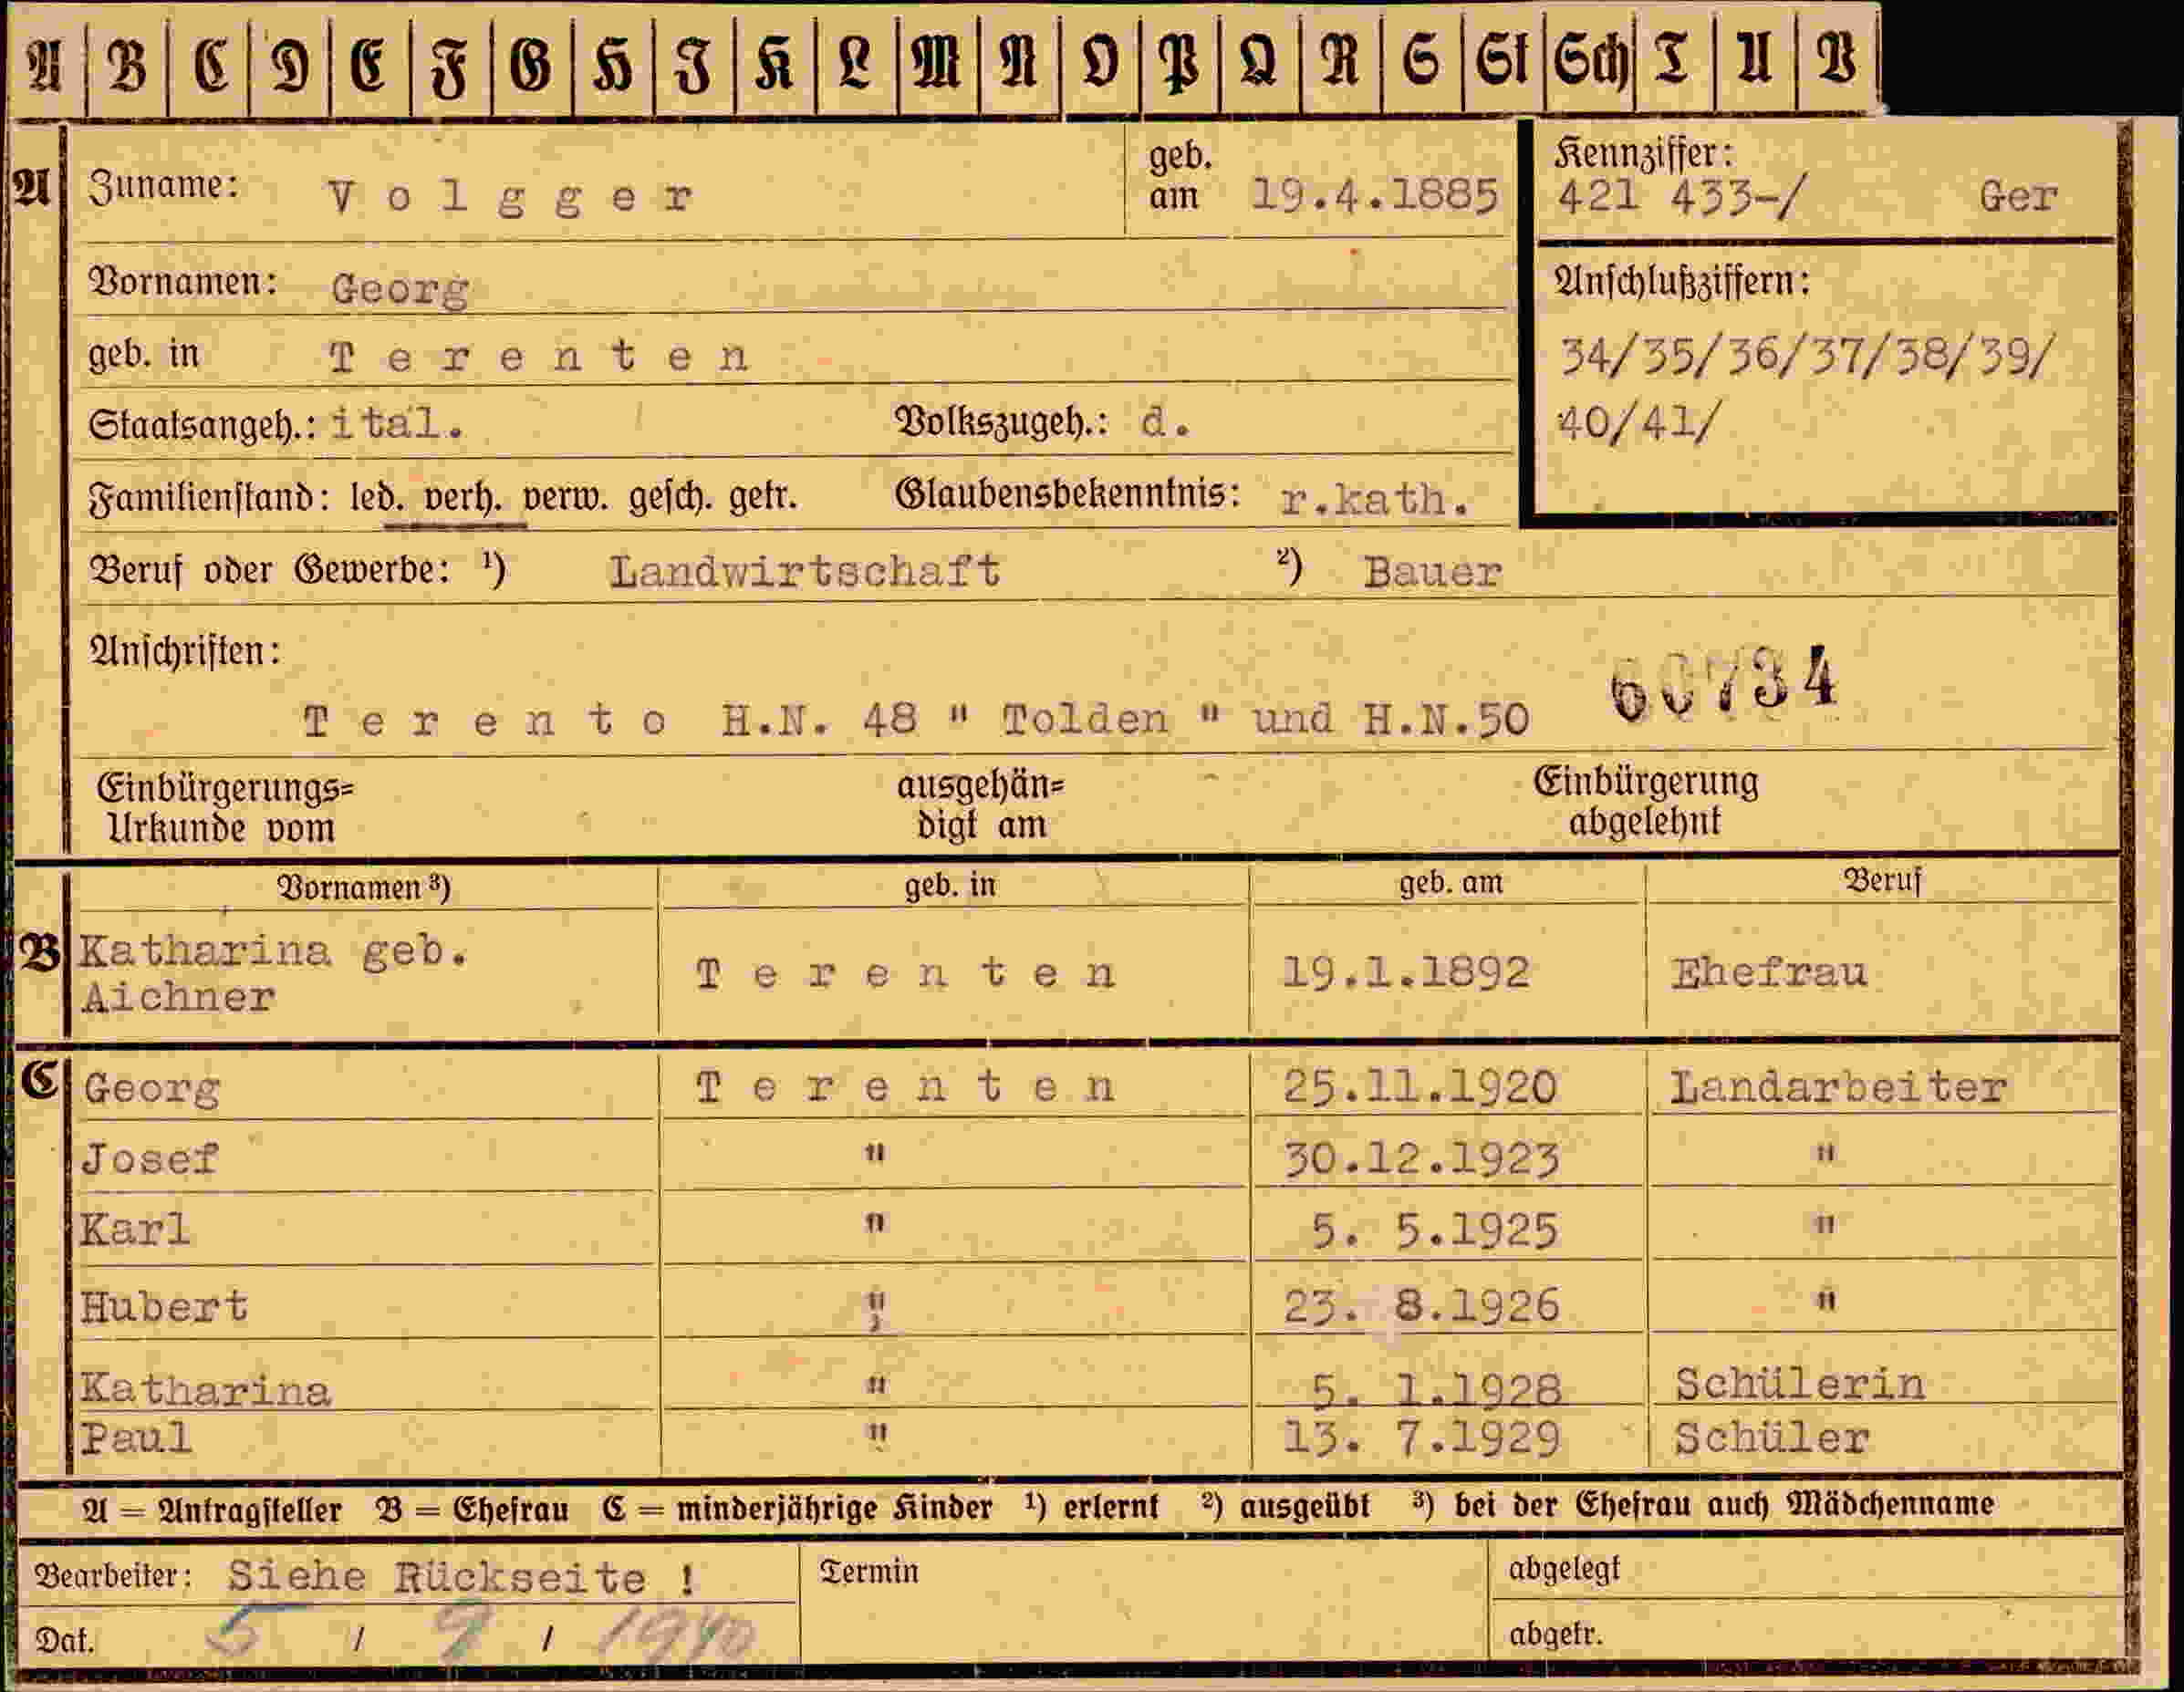 A B C D E F G H I K L M N O P Q R S St Sch T U V
A Zuname: V o l g g e r geb. am 19.4.1885 Kennziffer: 421 433-/ Ger
Vornamen: Georg Anschlußziffern:
geb. in T e r e n t e n 34/35/36/37/38/39/
Staatsangeh.: ital. Volkszugeh.: d. 40/41/
Familienstand: led. verh. verw. gesch. getr. Glaubensbekenntnis: r.kath.
Beruf oder Gewerbe: ¹) Landwirtschaft ²) Bauer
Anschriften: 60734
T e r e n t o H.N. 48 " Tolden " und H.N.50
Einbürgerungs= ausgehän= Einbürgerung
Urkunde vom digt am abgelehnt
Vornamen ³) geb. in geb. am Beruf
B Katharina geb. Aichner T e r e n t e n 19.1.1892 Ehefrau
C Georg T e r e n t e n 25.11.1920 Landarbeiter
Josef " 30.12.1923 "
Karl " 5. 5.1925 "
Hubert " 23. 8.1926 "
Katharina " 5. 1.1928 Schülerin
Paul " 13. 7.1929 Schüler
A = Antragsteller B = Ehefrau C = minderjährige Kinder ¹) erlernt ²) ausgeübt ³) bei der Ehefrau auch Mädchenname
Bearbeiter: Siehe Rückseite ! Termin abgelegt
Dat. 5 / 9 / 1940 abgetr.